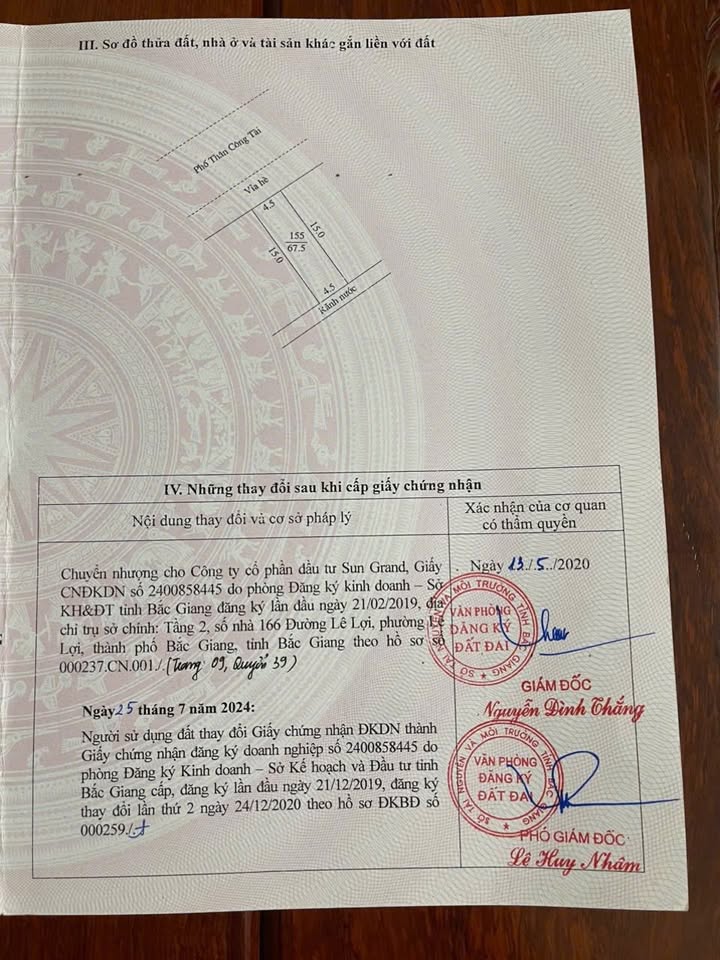 III. Sơ đồ thửa đất, nhà ở và tài sản khác gắn liền với đất
Phố Thân Công Tài
Vỉa hè
4.5
15.0
155
67.5
15.0
4.5
Kênh nước
IV. Những thay đổi sau khi cấp giấy chứng nhận
Nội dung thay đổi và cơ sở pháp lý
Xác nhận của cơ quan
có thẩm quyền
Chuyển nhượng cho Công ty cổ phần đầu tư Sun Grand, Giấy
CNĐKDN số 2400858445 do phòng Đăng ký kinh doanh – Sở
KH&ĐT tỉnh Bắc Giang đăng ký lần đầu ngày 21/02/2019, địa
chỉ trụ sở chính: Tầng 2, số nhà 166 Đường Lê Lợi, phường Lê
Lợi, thành phố Bắc Giang, tỉnh Bắc Giang theo hồ sơ số
000237.CN.001./. (Trang 09, Quyển 39)
Ngày 13./.5../2020
SỞ TÀI NGUYÊN VÀ MÔI TRƯỜNG TỈNH BẮC GIANG
VĂN PHÒNG
ĐĂNG KÝ
ĐẤT ĐAI
GIÁM ĐỐC
Nguyễn Đình Thắng
Ngày 25 tháng 7 năm 2024:
Người sử dụng đất thay đổi Giấy chứng nhận ĐKDN thành
Giấy chứng nhận đăng ký doanh nghiệp số 2400858445 do
phòng Đăng ký Kinh doanh – Sở Kế hoạch và Đầu tư tỉnh
Bắc Giang cấp, đăng ký lần đầu ngày 21/12/2019, đăng ký
thay đổi lần thứ 2 ngày 24/12/2020 theo hồ sơ ĐKBĐ số
000259./.
SỞ TÀI NGUYÊN VÀ MÔI TRƯỜNG TỈNH BẮC GIANG
VĂN PHÒNG
ĐĂNG KÝ
ĐẤT ĐAI
PHÓ GIÁM ĐỐC
Lê Huy Nhâm